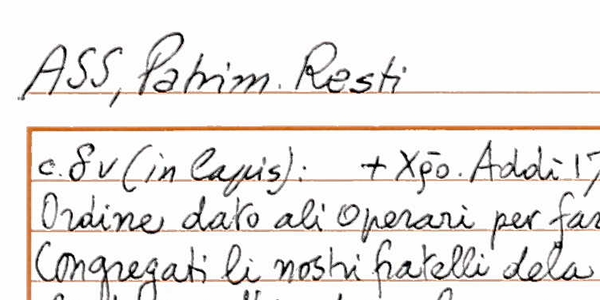 ASS, Patrim. Resti
c. 8v (in lapis): + Xp̄o. Addi 17
Ordine dato ali Operari per far
Congregati li nostri fratelli dela